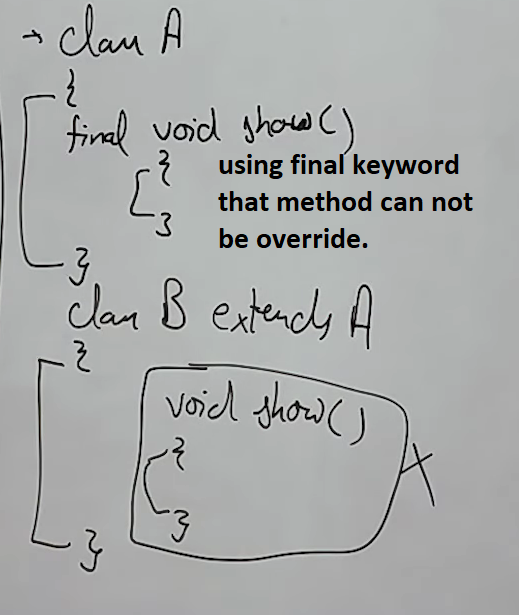 → class A
{
final void show()
{
using final keyword
that method can not
be override.
}
}
class B extends A
{
void show()
{
}
X
}